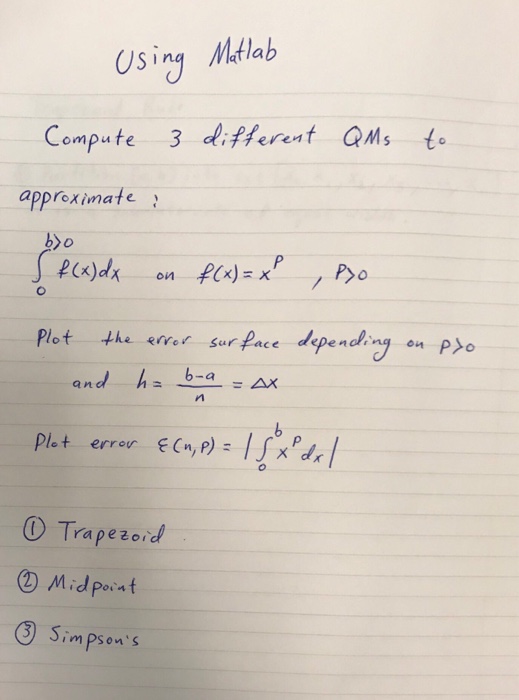 Using Matlab
Compute 3 different QMs to
approximate :
b>0
∫ f(x)dx on f(x) = x^p , p>0
0
Plot the error surface depending on p>0
and h = (b-a)/n = Δx
Plot error ε(n,p) = |∫_0^b x^p dx|
① Trapezoid
② Midpoint
③ Simpson's